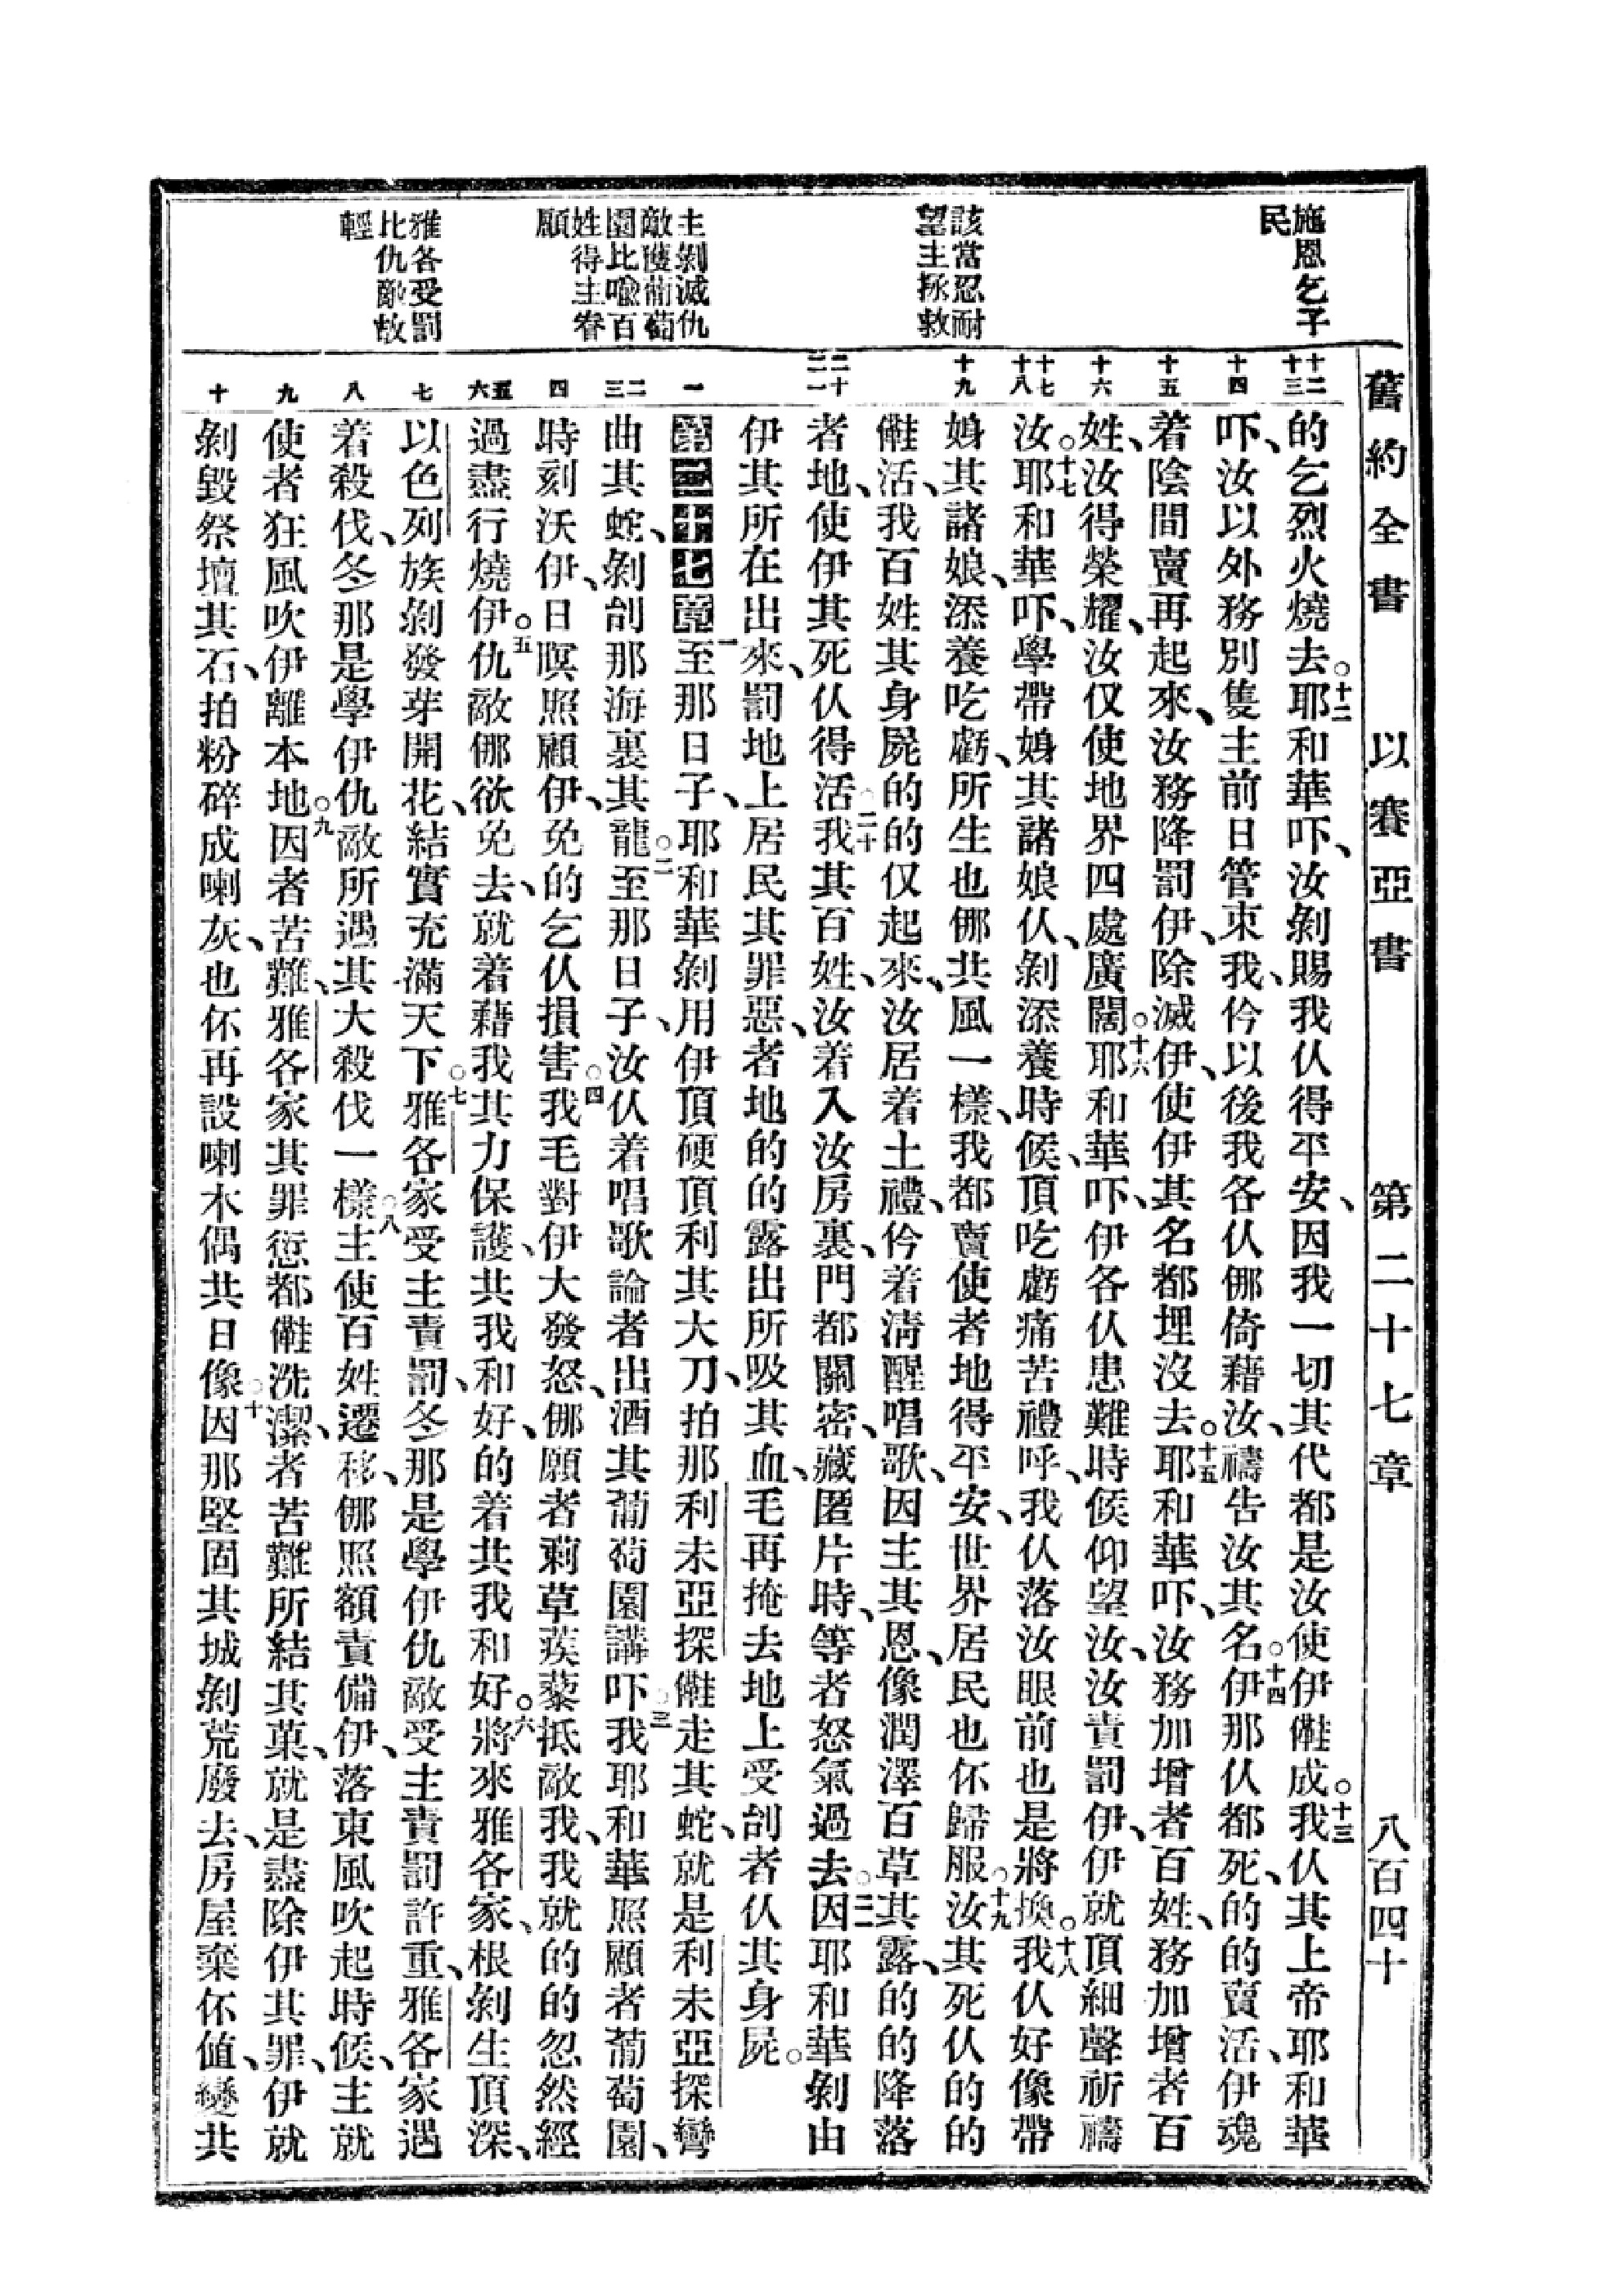 舊約全書 以賽亞書 第二十七章 八百四十
施恩乞子
民
該當忍耐
望主拯救
主剝滅仇
敵護葡萄
園比喩百
姓得主眷
顧
雅各受罰
比仇敵故
輕
十二 十三
十四
十五
十六
十七 十八
十九
二十 二一
一
二 三
四
五 六
七
八
九
十
的乞烈火燒去。十二耶和華吓、汝剝賜我仈得平安、因我一切其代都是汝使伊𠆧成。十三我仈其上帝耶和華
吓、汝以外務別隻主前日管束我、仱以後我各仈㑚倚藉汝、禱告汝其名。十四伊那仈都死、的的賣活、伊魂
着陰間賣再起來、汝務降罰伊、除滅伊、使伊其名都埋沒去。十五耶和華吓、汝務加增者百姓、務加增者百
姓、汝得榮耀、汝仅使地界四處廣闊。十六耶和華吓、伊各仈患難時候仰望汝、汝責罰伊、伊就頂細聲祈禱
汝。十七耶和華吓、學帶㛛其諸娘仈、剝㴱養時候、頂吃虧痛苦禮呼、我仈落汝眼前也是將換。十八我仈好像帶
㛛其諸娘、㴱養吃虧、所生也㑚共風一樣、我都賣使者地得平安、世界居民也伓歸服。十九汝其死仈的的
𠆧活、我百姓其身屍的的仅起來、汝居着土禮、仱着淸醒唱歌、因主其恩、像潤澤百草其露、的的降落
者地、使伊其死仈得活。二十我其百姓、汝着入汝房裏、門都關密、藏匿片時、等者怒氣過去。二一因耶和華剝由
伊其所在出來、罰地上居民其罪惡、者地的的露出所吸其血、毛再掩去地上受刣者仈其身屍。
第二十七章 一至那日子、耶和華剝用伊頂硬頂利其大刀、拍那利未亞探𠆧走其蛇、就是利未亞探彎
曲其蛇、剝刣那海裏其龍。二至那日子、汝仈着唱歌論者出酒其葡萄園講吓。三我耶和華照顧者葡萄園、
時刻沃伊、日暝照顧伊、免的乞仈損害。四我毛對伊大發怒、㑚願者莿草蒺藜抵敵我、我就的的忽然經
過盡行燒伊。五伊仇敵㑚欲免去、就着藉我其力保護、共我和好、的着共我和好。六將來雅各家、根剝生頂深、
以色列族剝發芽開花、結實充滿天下。七雅各家受主責罰、冬那是學伊仇敵受主責罰許重、雅各家遇
着殺伐、冬那是學伊仇敵所遇其大殺伐一樣。八主使百姓遷移、㑚照額責備伊、落東風吹起時候、主就
使者狂風吹伊離本地。九因者苦難、雅各家其罪愆都𠆧洗潔、者苦難所結其菓、就是盡除伊其罪、伊就
剝毀祭壇其石、拍粉碎成喇灰、也伓再設喇木偶共日像。十因那堅固其城剝荒廢去、房屋棄伓値、變共